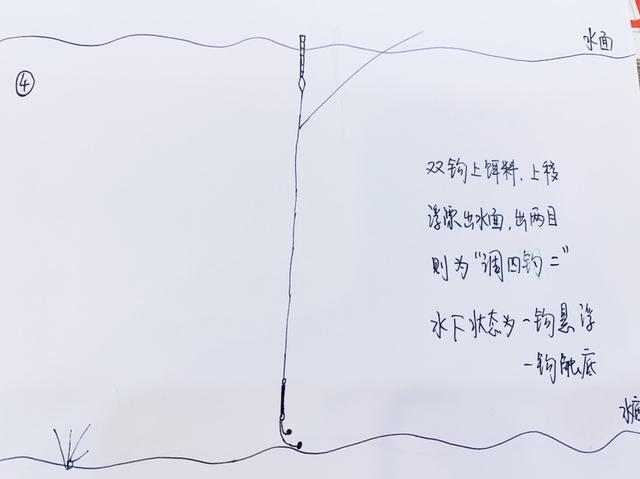 水面
④
双钩上饵料、上移
浮漂出水面,出两目
则为“调四钓二”
水下状态为一钩悬浮
一钩触底
水底